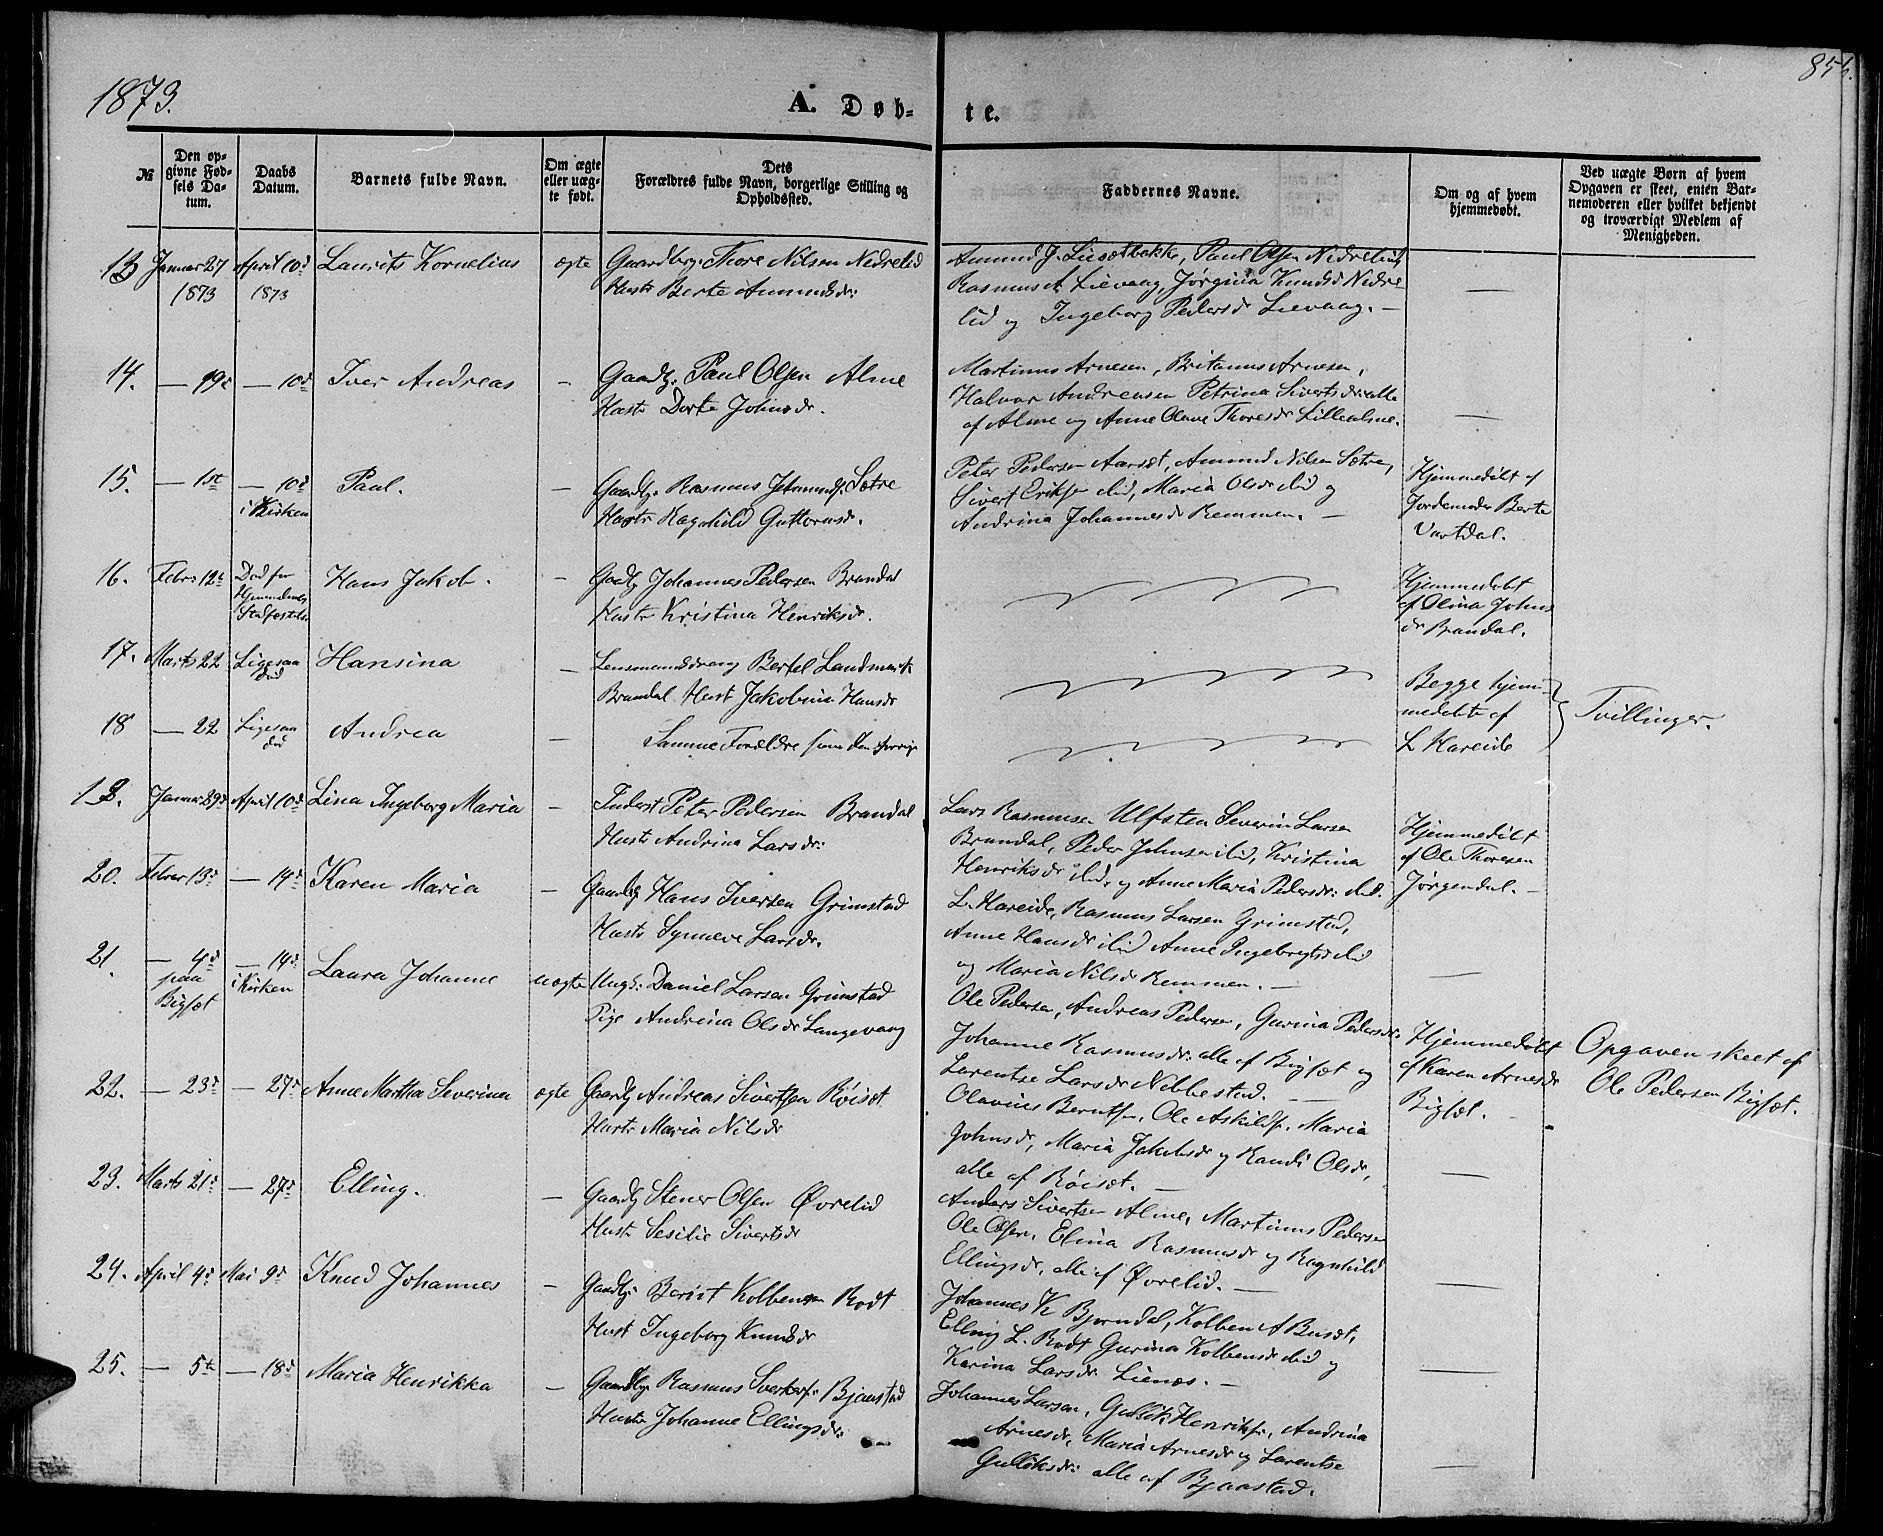 1873.
A. Døb-
te.
85b.
№
Den op-
givne Fød-
sels Da-
tum.
Daabs
Datum.
Barnets fulde Navn.
Om ægte
eller uæg-
te født.
Dets
Forældres fulde Navn, borgerlige Stilling og
Opholdssted.
Faddernes Navne.
Om og af hvem
hjemmedøbt.
Ved uægte Børn af hvem
Opgaven er skeet, enten Bar-
nemoderen eller hvilket bekjendt
og troværdigt Medlem af
Menigheden.
13 Januar 27 April 10d Laurits Kornelius ægte Gaardbr. Thore Nilsen Nedrelid
1873 1873 Hustr Berte Amundsdr:
Amund J. Lievætbakke, Paul Olsen Nedrelid,
Rasmus A Lievaag, Jørgina Knudsd Nedre
lid og Ingeborg Pedersdr Lievaag. —
—
14. — 19e — 10d Iver Andreas — Gaardbr. Paul Olsen Alme
Hustr Dorte Johnsdr.
Martinus Arnesen, Britanus Arnesen,
Halvor Andreasen Petrina Sivertsdr: alle
af Alme og Anne Oluve Thoresdr Lillealme.
—
15. — 1ste — 10d Paul. — Gaardbr. Rasmus Johannes. Sætre
i Kirken Hustr Ragnhild Guttormsdr.
Peter Pedersen Aarsæt, Amund Nilsen Sætre,
Sivert Eriksen ibid, Maria Olsdr ibid og
Andrina Johannesdr Remmen. —
Hjemmedøbt af
Jordemoder Berte
Vartdal.
16. Febr. 12te Død før Hans Jakob. — Gaardbr Johannes Pedersen Brandal
Hjemmedaabs
Stadfæstelse Hustr Kristina Henriksdr.
Hjemmedøbt
af Olina Johns
dr Brandal.
17. Marts 22 Ligesaa Hansina — Lensmandsdreng Bertel Landmark
død Brandal Hust Jakobine Hansdr
Begge hjem-
medøbte af
L Hareide
Tvillinger.
18 — 22 Ligesaa Andrea — Samme Forældre som den forrige
død
19. Januar 29d April 10d Lina Ingeborg Maria — Inderst Peter Pedersen Brandal
Hustr Andrina Larsdr:
Lars Rasmusen Ulfsten Severin Larsen
Brandal, Peder Johnsen ibid, Kristina
Henriksdr ibid, og Anne Maria Pedersdr: ibid.
Hjemmedøbt
af Ole Thoresen
Jørgendal. —
20. Februar 13d — 14d Karen Maria — Gaardbr Hans Iversen Grimstad
Hustr Synneve Larsdr.
L. Hareide, Rasmus Larsen Grimstad,
Anne Hansdr ibid Anne Ingebregtsd ibid
og Maria Nilsdr Remmen. —
—
21. — 4d — 14d Laura Johanne uægte Ungk: Daniel Larsen Grimstad
paa i Kirken
Bigsæt Pige Andrina Olsdr Langevaag
Ole Pedersen, Andreas Pedersen, Gurina Pedersdr.
Johanne Rasmusdr: alle af Bigsæt og
Larentse Larsdr Nebbestad. —
Hjemmedøbt
af Karen Arnesdr
Bigsæt. —
Opgaven skeet af
Ole Pedersen Bigsæt.
22. — 23d — 27d Anne Martha Severina ægte Gaardbr Andreas Sivertsen Røisæt
Hustr Maria Nilsdr
Olavius Berntsen, Ole Askilds, Maria
Johnsdr, Maria Jakobsdr og Randi Olsdr,
alle af Røisæt. —
—
23. Marts 21d — 27d Elling. — Gaardbr Stener Olsen Øvrelid
Hustr Sesilie Sivertsdr
Anders Sivertsen Alme, Martinus Pedersen
Ole Olsen, Elina Rasmusdr og Ragnhild
Ellingsdr, alle af Øvrelid. —
—
24. April 4d Mai 9d Knud Johannes — Gaardbr. Bernt Kolbensen Rodt
Hust Ingeborg Knudsdr
Johannes K Bjørndal, Kolben A Busæt,
Elling L. Rodt Gurina Kolbensdr ibid og
Karina Larsdr Lienæs. —
—
25. — 5te — 18d Maria Henrikka — Gaardbr. Rasmus Sverkers. Bjaastad
Hustr Johanne Ellingsdr:
Johannes Larsen, Gulleik Henriksen, Andrina
Arnesdr, Maria Arnesdr og Larentse
Gulleiksdr: alle af Bjaastad.
—